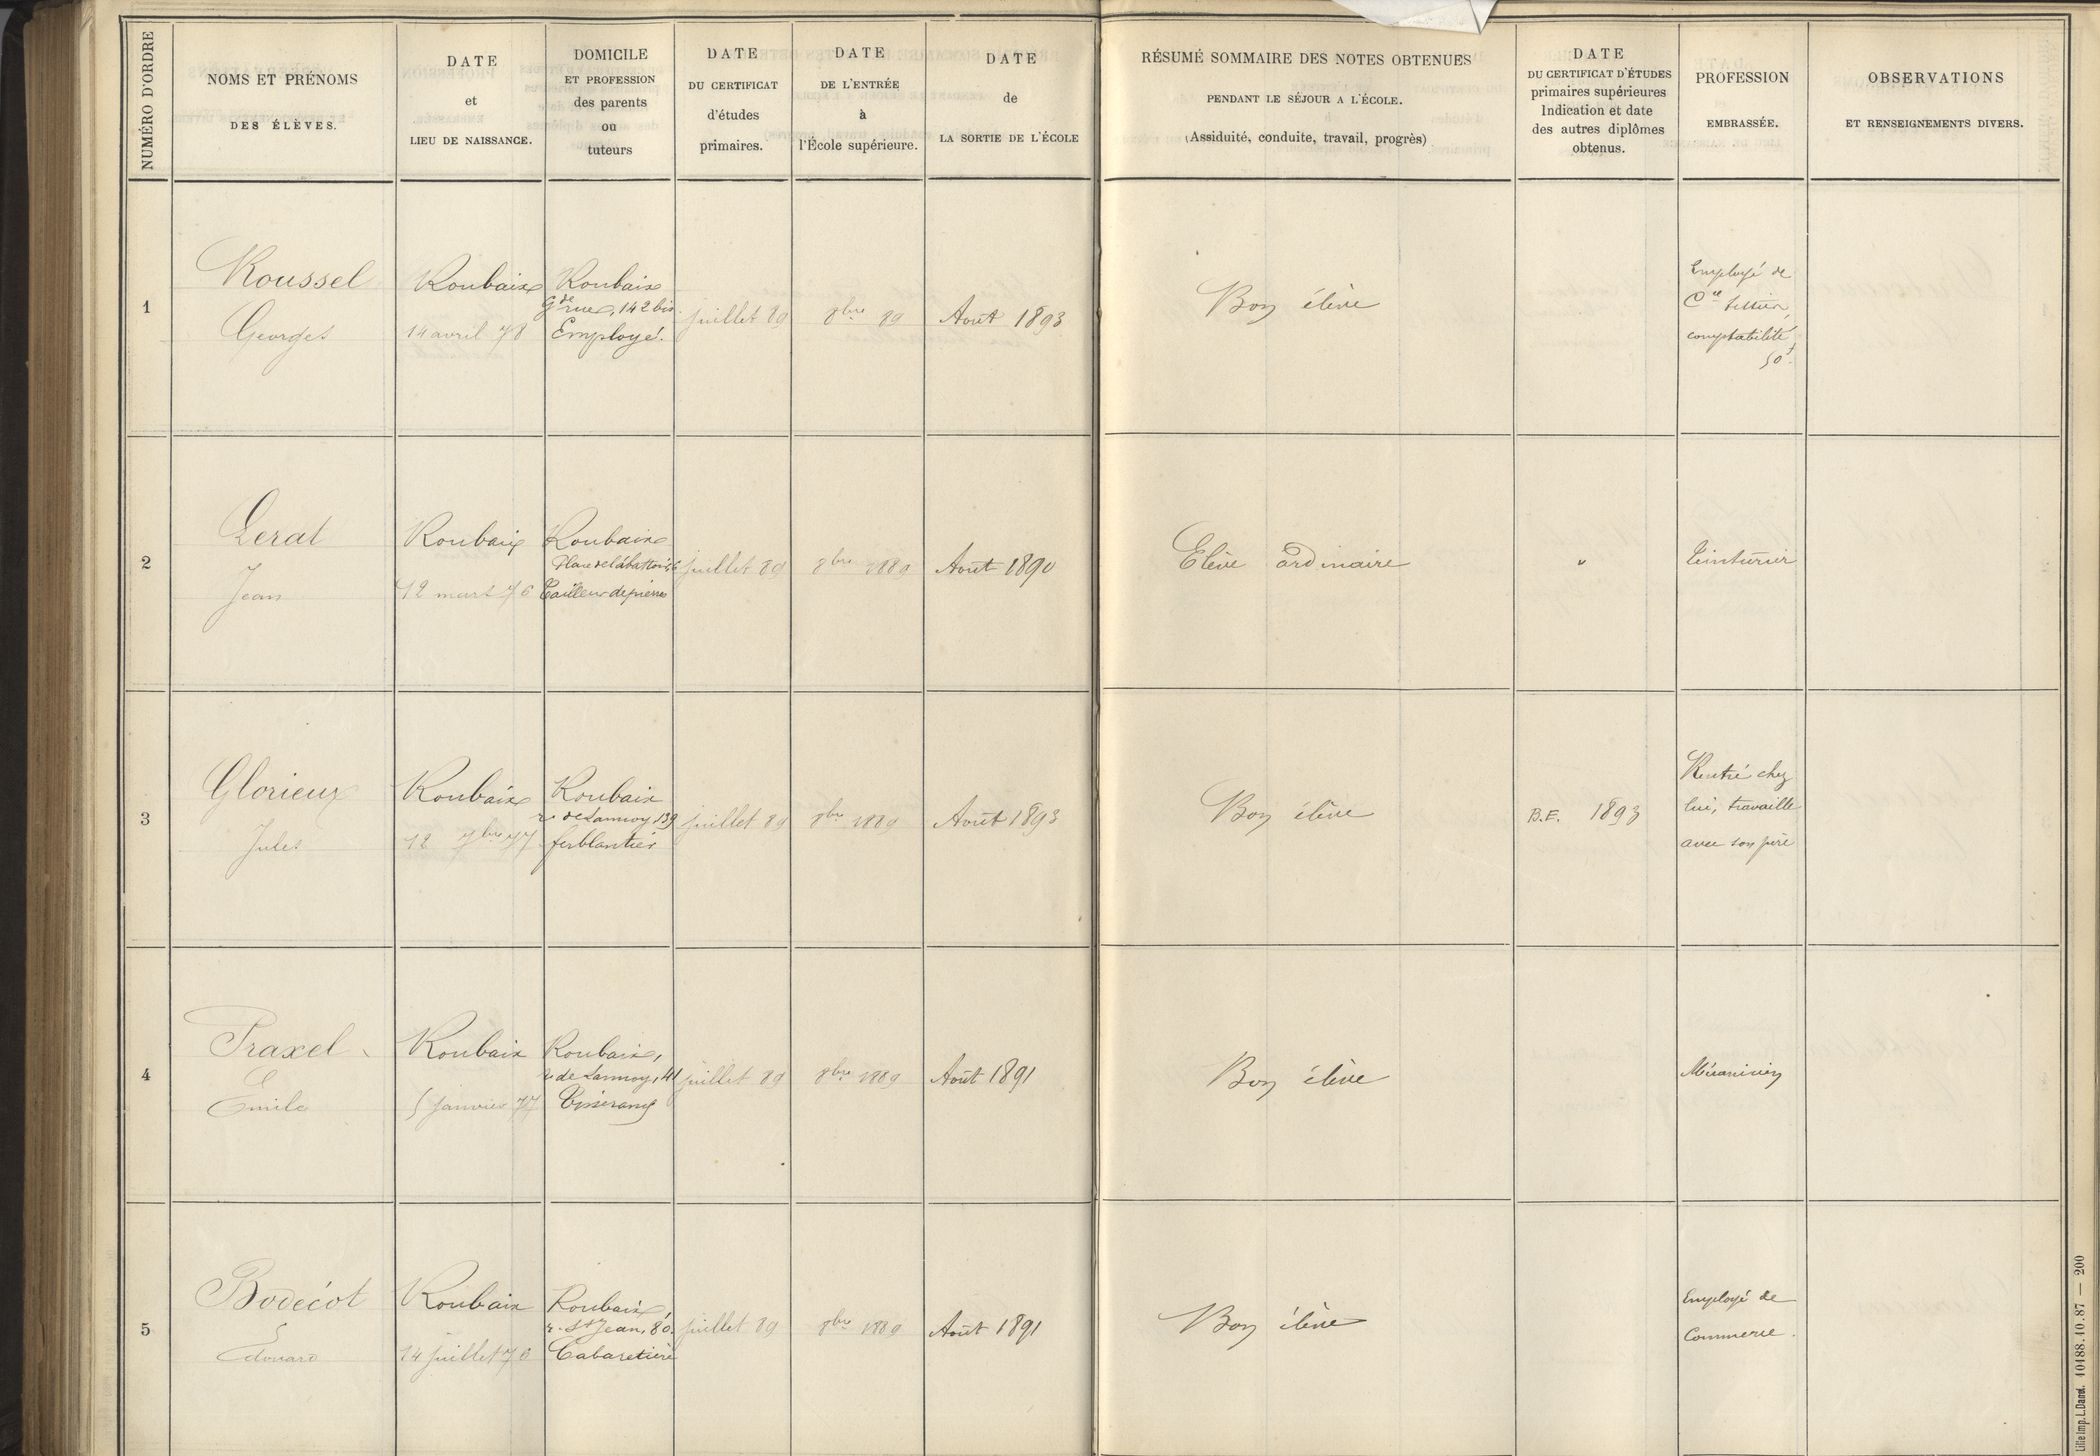 NUMÉRO D'ORDRE
NOMS ET PRÉNOMS
DES ÉLÈVES.
DATE
et
LIEU DE NAISSANCE.
DOMICILE
ET PROFESSION
des parents
ou
tuteurs
DATE
DU CERTIFICAT
d'études
primaires.
DATE
DE L'ENTRÉE
à
l'École supérieure.
DATE
de
LA SORTIE DE L'ÉCOLE
RÉSUMÉ SOMMAIRE DES NOTES OBTENUES
PENDANT LE SÉJOUR A L'ÉCOLE.
(Assiduité, conduite, travail, progrès)
DATE
DU CERTIFICAT D'ÉTUDES
primaires supérieures
Indication et date
des autres diplômes
obtenus.
PROFESSION
EMBRASSÉE.
OBSERVATIONS
ET RENSEIGNEMENTS DIVERS.
1
Roussel
Georges
Roubaix
14 avril 78
Roubaix
Gde rue, 142 bis.
Employé.
juillet 89
8bre 89
Août 1893
Bon élève
Employé de
Cce
comptabilité
50f.
2
Lerat
Jean
Roubaix
12 mars 76
Roubaix
Place de l'abattoir, 6
Tailleur de pierres
juillet 89
8bre 1889
Août 1890
Elève ordinaire
"
Teinturier
3
Glorieux
Jules
Roubaix
12 7bre 77
Roubaix
r. de Lannoy, 139
ferblantier
juillet 89
8bre 1889
Août 1893
Bon élève
B.E. 1893
Rentré chez
lui, travaille
avec son père
4
Praxel
Emile
Roubaix
5 janvier 77
Roubaix,
r. de Lannoy, 141
Tisserand
juillet 89
8bre 1889
Août 1891
Bon élève
Mécanicien
5
Bodécot
Edouard
Roubaix
14 juillet 76
Roubaix,
r. St Jean, 80.
Cabaretière
juillet 89
8bre 1889
Août 1891
Bon élève
Employé de
Commerce.
Lille Imp. L. Danel. 10488.10.87 — 200